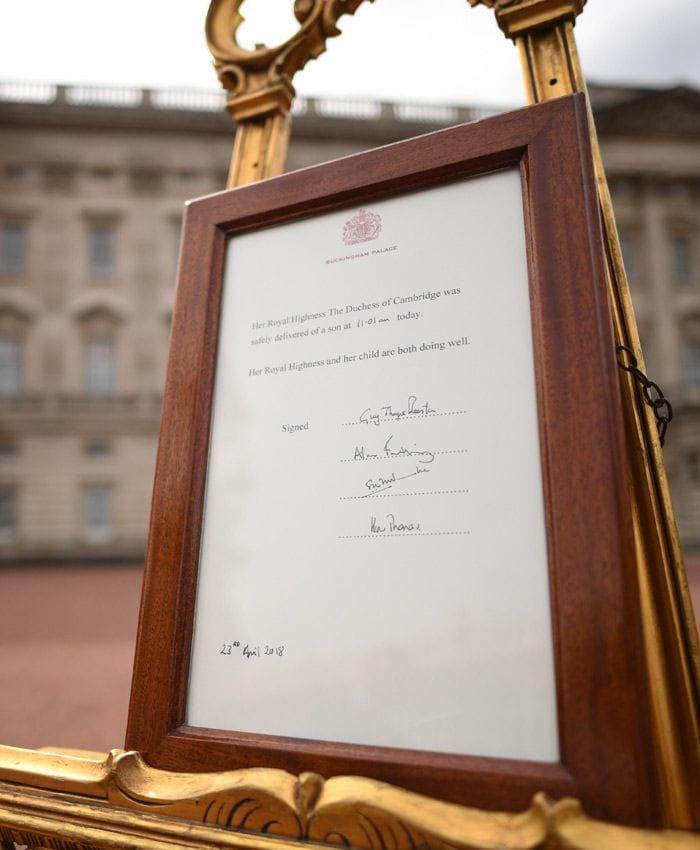 BUCKINGHAM PALACE
Her Royal Highness The Duchess of Cambridge was
safely delivered of a son at 11-01am today.
Her Royal Highness and her child are both doing well.
Signed
Guy Thorpe-Beeston
Alan Farthing
23RD April 2018